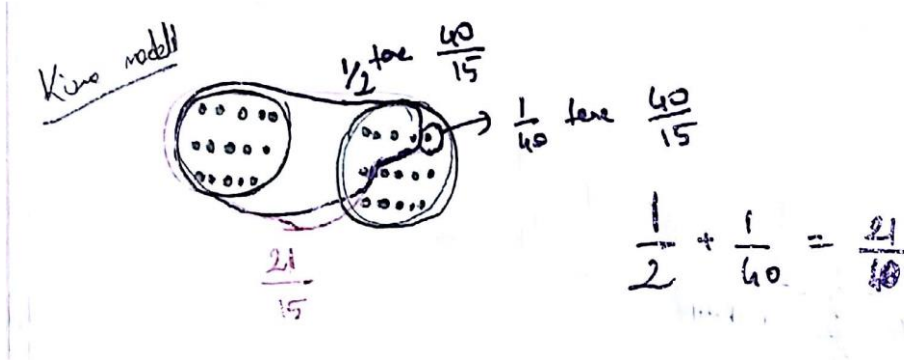 Küme modeli
1/2 tane 40/15
1/40 tane 40/15
21/15
1/2 + 1/40 = 21/40